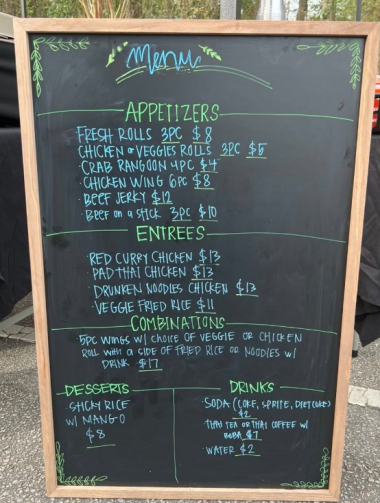 Menu
APPETIZERS
FRESH ROLLS 3PC $8
CHICKEN or VEGGIES ROLLS 3PC $5
CRAB RANGOON 4PC $4
· CHICKEN WING 6PC $8
· BEEF JERKY $12
· BEEF on a STICK 3PC $10
ENTREES
· RED CURRY CHICKEN $13
· PAD THAI CHICKEN $13
· DRUNKEN NOODLES CHICKEN $13
· VEGGIE FRIED RICE $11
COMBINATIONS
5PC WINGS w/ CHOICE OF VEGGIE OR CHICKEN
ROLL WITH A SIDE OF FRIED RICE OR NOODLES w/
DRINK $17
DESSERTS
· STICKY RICE
W/ MANGO
$8
DRINKS
· SODA (COKE, SPRITE, DIET COKE)
$2
THAI TEA OR THAI COFFEE w/
BOBA $7
WATER $2